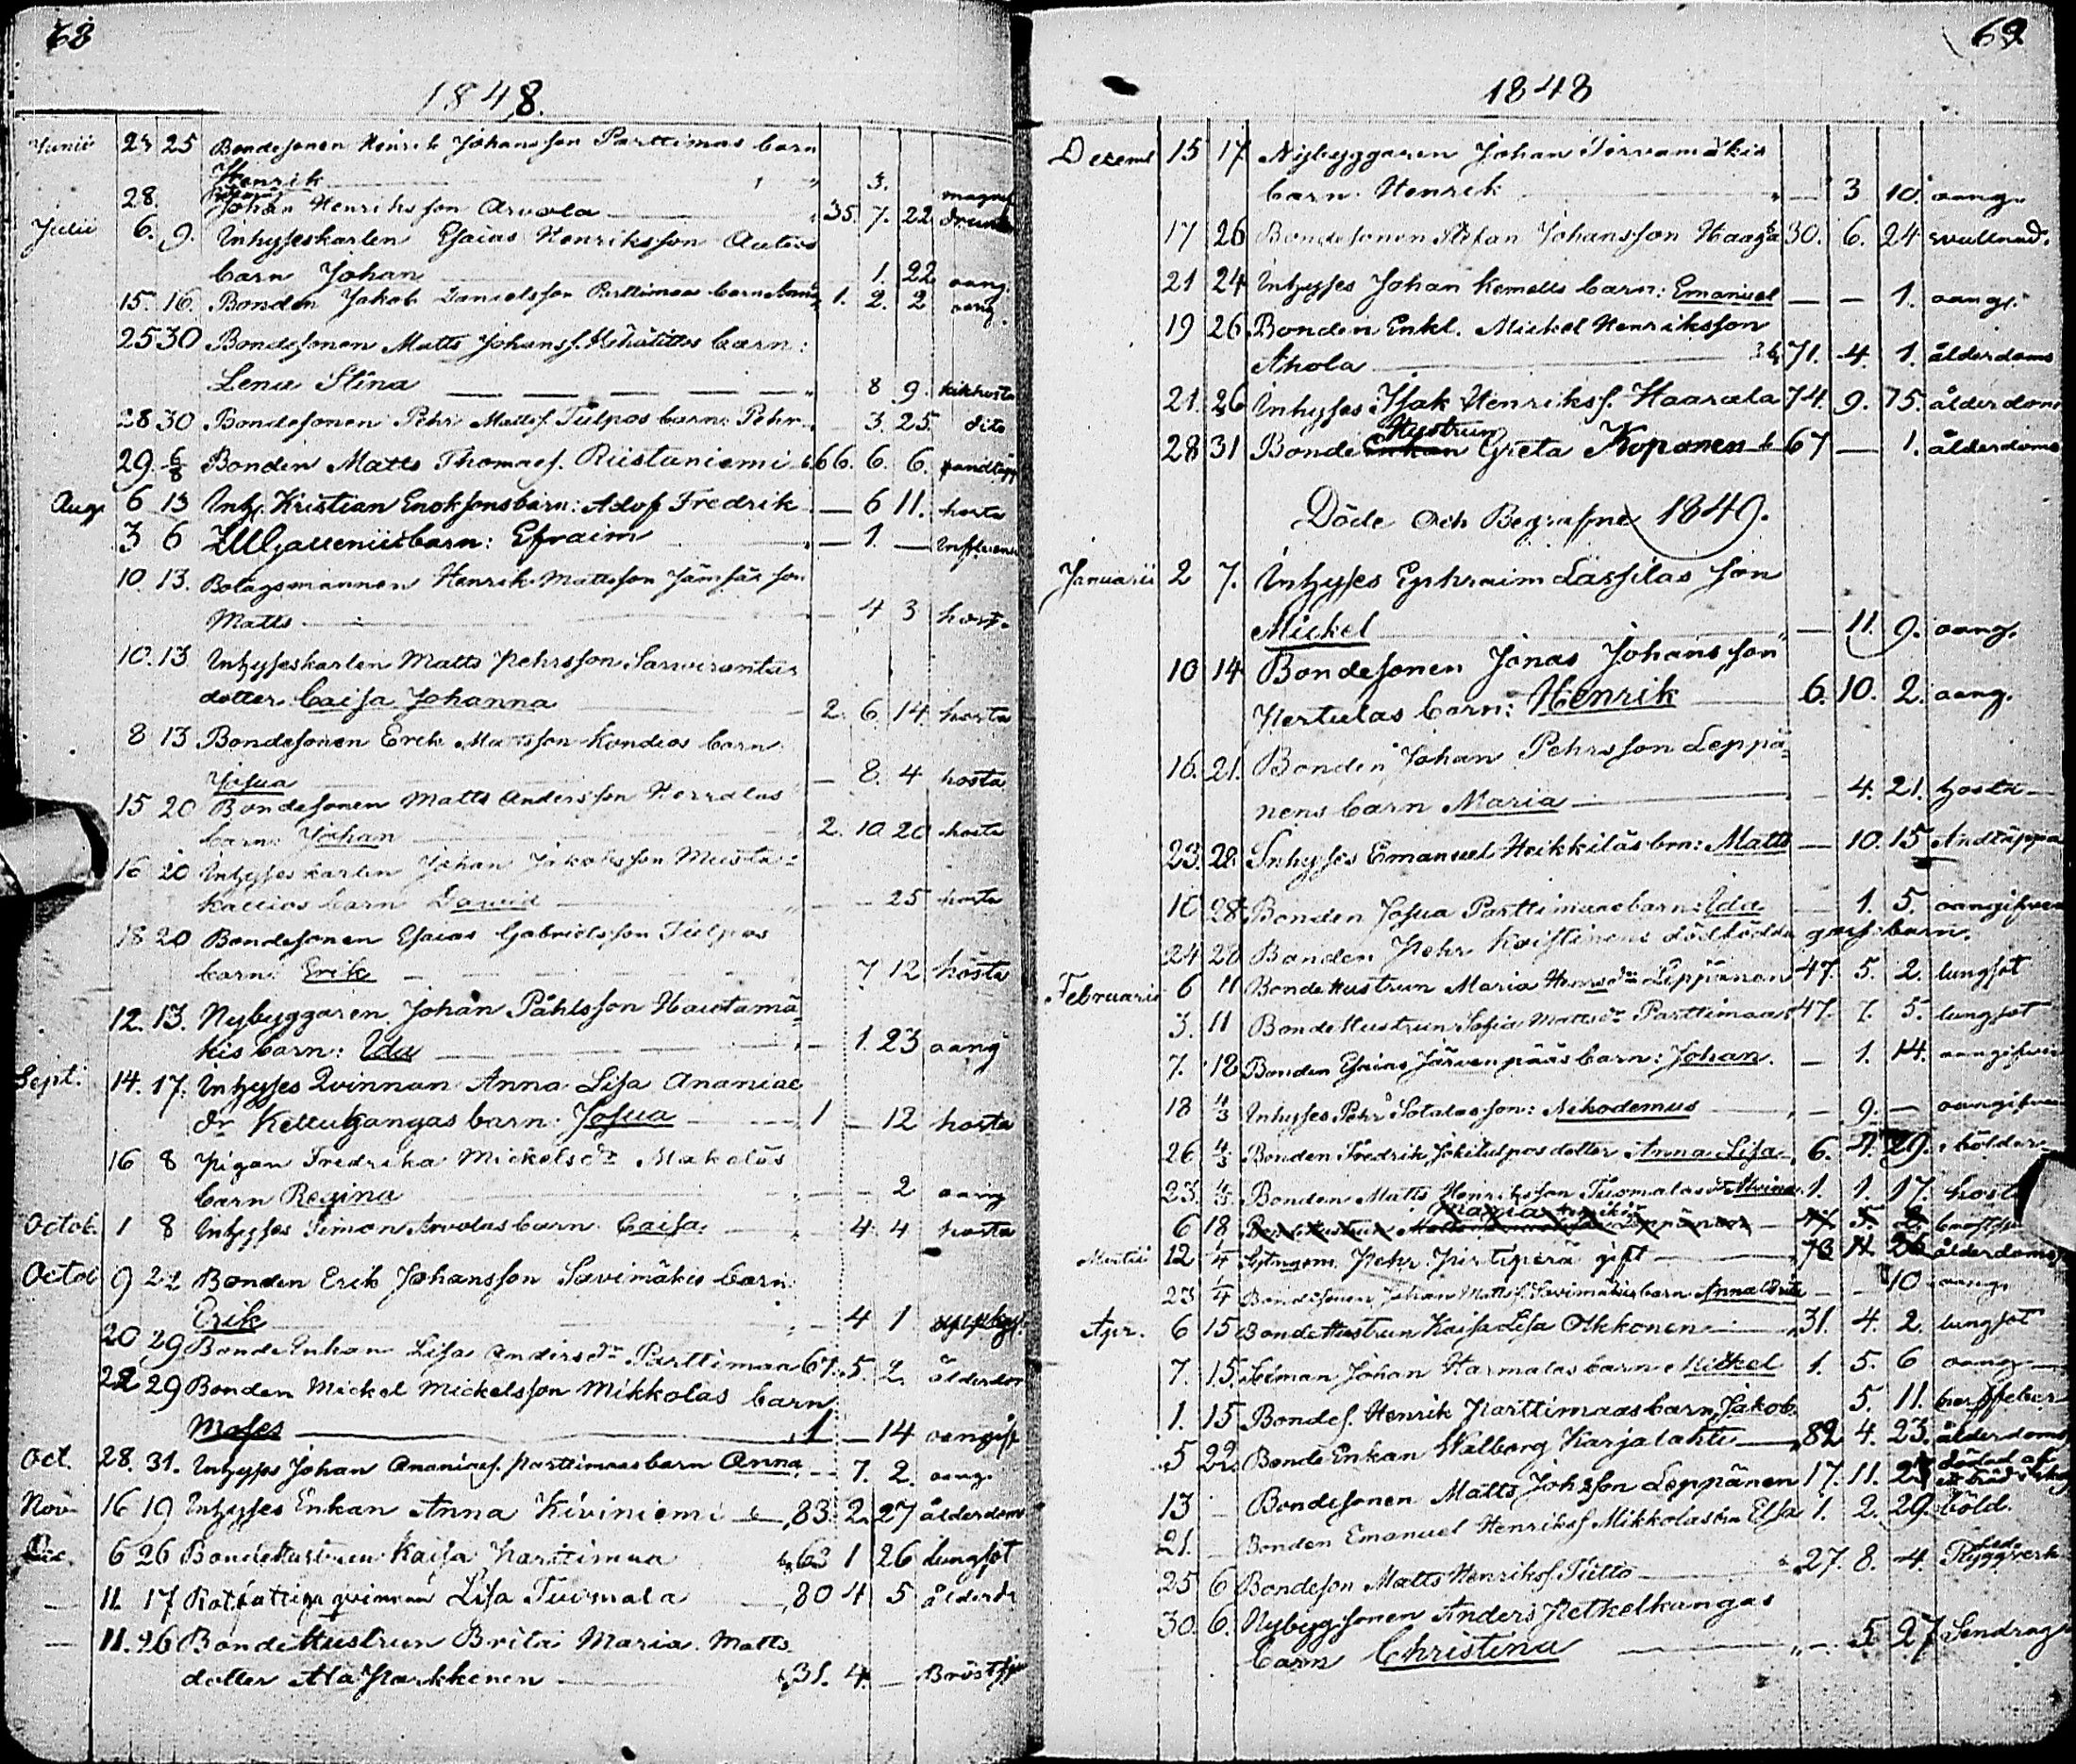 68
1848.
Junii 24 25 Bondesonen Henrik Johansson Parttimas barn
Henrik 3.
28. Johan Henriksson Arvola 35. 7. 22
Julii 6. 9. Inhyseskarlen Esaias Henriksson Autios
barn Johan 1. 22 aang.
15. 16. Bonden Jakob Danielsson Parttimaas barn 1. 2. 2 aang.
25 30 Bondesonen Matts Johanss. barn:
Lena Stina 8 9. kikhosta
28 30 Bondesonen Pehr Matts. Tulpos barn: Pehr 3. 25. dito
29. 6/8 Bonden Matts Thomaes. Ristaniemi 66. 6. 6. andtäpp
Aug. 6 13 Inhy. Kristian Enoksons barn: Adolf Fredrik — 6 11. hosta
3 6 barn: Efraim — 1. — Influens
10. 13. Bolagsmannen Henrik Mattsson Jämsäs son
Matts — 4 3 host.
10. 13 Inhyseskarlen Matts Pehrsson Sarvirantas
dotter Caisa Johanna 2. 6 14 hosta
8 13 Bondesonen Erik Mattsson Kondios barn
Josua — 8. 4 hosta
15 20 Bondesonen Matts Andersson Herralas
barn: Johan 2. 10 20 hosta
16 20 Inhyseskarlen Johan Jakobsson Musta-
kallios barn David — — 25 hosta
18 20 Bondesonen Esaias Gabrielsson Tulpos
barn: Erik 7 12 hosta
12. 13. Nybyggaren Johan Påhlsson Hautamä-
kis barn: Ida — 1. 23 aang
Sept. 14. 17. Inhyses Qvinnan Anna Lisa Ananiae
dr Kellukangas barn: Josua 1 — 12 hosta
16 8 Pigan Fredrika Mickelsdr Mäkeläs
barn Regina — — 2 aang
Octob. 1 8 Inhyses Simon Arvolas barn Caisa 4. 4 hosta
Octob 9 22 Bonden Erik Johansson Savimäkis barn
Erik — 4 1
20 29 Bonde Enkan Lisa Andersdr Parttimaa 67. 5 2. ålderdom
22 29 Bonden Mickel Mickelsson Mikkolas barn
Moses 1 — 14 aangif
Oct. 28. 31. Inhyses Johan Ananiaes. Parttimaas barn Anna — 7. 2. aang.
Nov. 16 19 Inhyses Enkan Anna Kiviniemi 83. 2. 27 ålderdom
Dec. 6 26 Bondehustrun Kaisa Parttimaa 63 1 26 lungsot
— 11. 17 Rotfattiga qvinnan Lisa Tuomala 80 4 5 ålderd
— 11. 26 Bondehustrun Brita Maria Matts
dotter Ala Parkkinen 31. 4. — Bröstf
69
1848
Decemb 15 17 Nybyggaren Johan Tervamäkis
barn Henrik — 3 10. aang.
17 26 Bondesonen Stefan Johansson Haaga 30. 6. 24 svullnad.
21 24 Inhyses Johan Kemells barn: Emanuel — — 1. aang.
19 26 Bonden Enkl. Mickel Henriksson
Ahola 71. 4. 1. ålderdoms
21. 26 Inhyses Isak Henrikss. Haarala 74. 9. 15. ålderdom
28 31 Bonde Hustrun Greta Koponen 67 — 1. ålderdoms
Döde och Begrafne 1849.
Januarii 2 7. Inhyses Ephraim Lassilas son
Mickel — 11. 9. aang.
10 14 Bondesonen Jonas Johansson
Pertulas barn: Henrik 6. 10. 2. aang.
16. 21. Bonden Johan Pehrsson Leppä-
nens barn Maria 4. 21. hosta
23. 28. Inhyses Emanuel Heikkiläs brn: Matts — 10. 15 Andtäppa
10 28 Bonden Josua Parttimaas barn: Ida — 1. 5. aangifven
24 28 Bonden Pehr Koistinens dödfödda gossebarn.
Februarii 6 11 Bondehustrun Maria Henrsdr Leppänen 47. 5. 2. lungsot
3. 11 Bondehustrun Sofia Mattsdr Parttimaa 47. 7. 5. lungsot
7. 18 Bonden Esaias Järvenpääs barn: Johan — 1. 14. aangifven
18 4/3 Inhyses Pehr Sotalas son: Nikodemus — 9. — aangifven
26 4/3 Bonden Fredrik Jokitulpos dotter Anna Lisa 6. 4. 29. bölder
23. 4/3 Bonden Matts Henriksson Tuomalas dr Alvina 1. 1. 17. host
6 18 Bondehustrun Maria Leppänen 47 5. 2.
Martii 12 1/4 Pehr Pirtiperä gift 73 11 26 ålderdoms
23 1/4 Bondesonen Johan Mattss. Savimäkis barn Anna Brita — — 10 aang.
Apr. 6 15 Bondehustrun Kaisa Lisa Olkkonen 31. 4. 2. lungsot
7. 15. Johan Harmalas barn Mickel 1. 5. 6 aang
1. 15 Bondes. Henrik Parttimaas barn Jakob 5. 11.
5 22. Bonde Enkan Walborg Karjalahti 82 4. 23. ålderdoms
13 — Bondesonen Matts Johsson Leppänen 17. 11. 23 dödad af
21. — Bonden Emanuel Henrikss. Mikkolas brn Elsa 1. 2. 29. böld.
25 6 Bondeson Matts Henrikss. Tiitto 27. 8. 4. Ryggverk
30. 6. Nybygg.sonen Anders Petkelkangas
barn Christina — 5 27 Sendrag